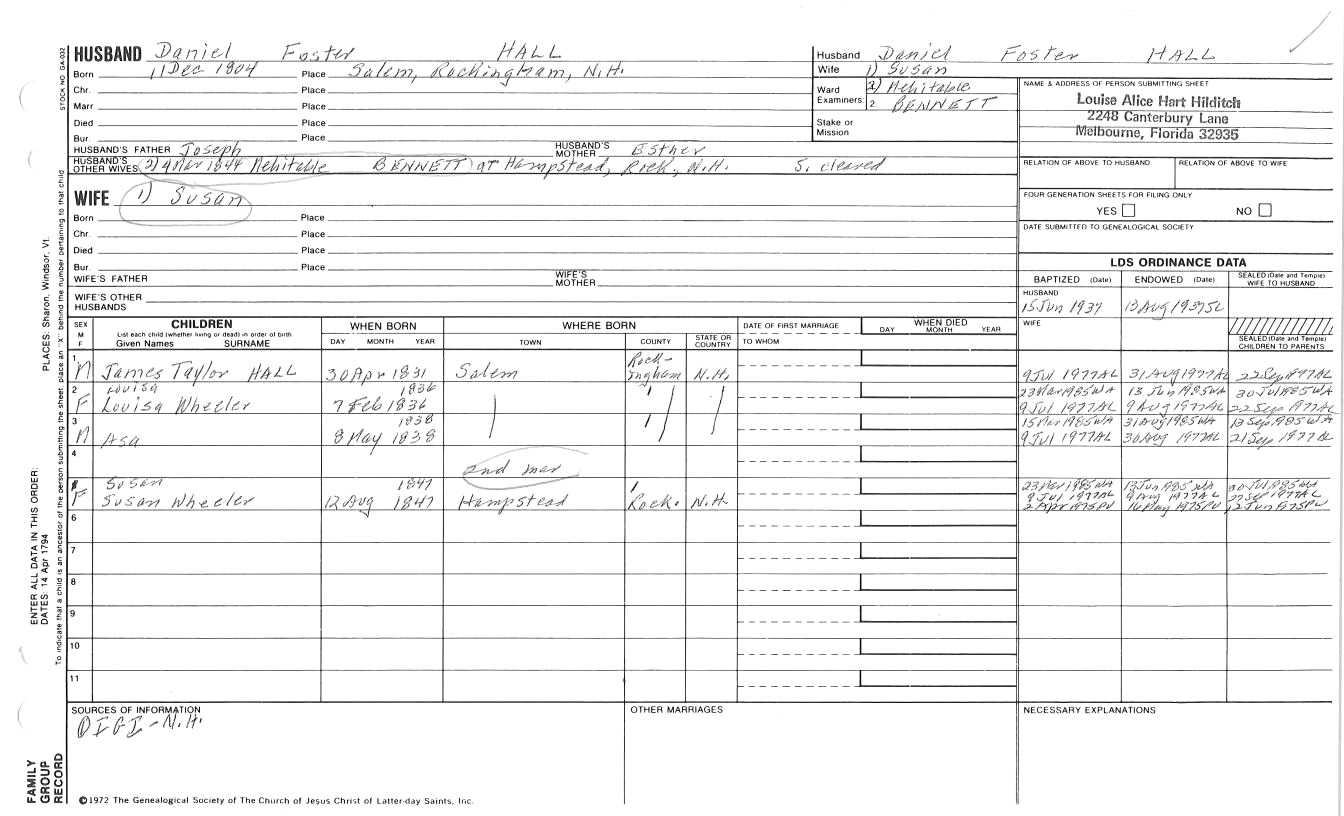 HUSBAND Daniel Foster HALL
Born 11 Dec 1804 Place Salem, Rockingham, N.H.
Chr. Place
Marr Place
Died Place
Bur. Place
HUSBAND'S FATHER Joseph HUSBAND'S MOTHER Esther
HUSBAND'S OTHER WIVES (2) 4 Mar 1844 Mehitable BENNETT) at Hampstead, Rock., N.H. S. cleared
WIFE 1) Susan
Born Place
Chr. Place
Died Place
Bur. Place
WIFE'S FATHER WIFE'S MOTHER
WIFE'S OTHER HUSBANDS
Husband Daniel Foster HALL
Wife 1) Susan
Ward 2) Mehitable
Examiners: 1 2 BENNETT
Stake or Mission
NAME & ADDRESS OF PERSON SUBMITTING SHEET
Louise Alice Hart Hilditch
2248 Canterbury Lane
Melbourne, Florida 32935
RELATION OF ABOVE TO HUSBAND RELATION OF ABOVE TO WIFE
FOUR GENERATION SHEETS FOR FILING ONLY
YES NO
DATE SUBMITTED TO GENEALOGICAL SOCIETY
LDS ORDINANCE DATA
BAPTIZED (Date) ENDOWED (Date) SEALED (Date and Temple) WIFE TO HUSBAND
HUSBAND
15 Jun 1937 13 Aug 1937SL
WIFE
SEALED (Date and Temple) CHILDREN TO PARENTS
SEX M F CHILDREN List each child (whether living or dead) in order of birth Given Names SURNAME WHEN BORN DAY MONTH YEAR WHERE BORN TOWN COUNTY STATE OR COUNTRY DATE OF FIRST MARRIAGE TO WHOM WHEN DIED DAY MONTH YEAR
1 M James Taylor HALL 30 Apr 1831 Salem Rock-ingham N.H. 9 Jul 1977AL 31 Aug 1977AL 22 Sep 1977AL
2 Louisa 1836 23 Mar 1985WA 13 Jun 1985WA 30 Jul 1985WA
F Louisa Wheeler 7 Feb 1836 9 Jul 1977AL 9 Aug 1977AL 22 Sep 1977AL
3 1838 15 Mar 1985WA 31 Aug 1985WA 13 Sep 1985WA
M Asa 8 May 1838 9 Jul 1977AL 30 Aug 1977AL 21 Sep 1977AL
4 2nd mar
Susan 1847 23 Mar 1985WA 13 Jun 1985WA 30 Jul 1985WA
F Susan Wheeler 12 Aug 1847 Hampstead Rock. N.H. 9 Jul 1977AL 9 Aug 1977AL 22 Sep 1977AL
2 Apr 1975PV 16 May 1975PV 12 Jun 1975PV
6
7
8
9
10
11
SOURCES OF INFORMATION OTHER MARRIAGES NECESSARY EXPLANATIONS
IGI - N.H.
©1972 The Genealogical Society of The Church of Jesus Christ of Latter-day Saints, Inc.
STOCK NO GA-032
To indicate that a child is an ancestor of the person submitting the sheet, place an "X" behind the number pertaining to that child
ENTER ALL DATA IN THIS ORDER:
DATES: 14 Apr 1794
PLACES: Sharon, Windsor, Vt.
FAMILY GROUP RECORD